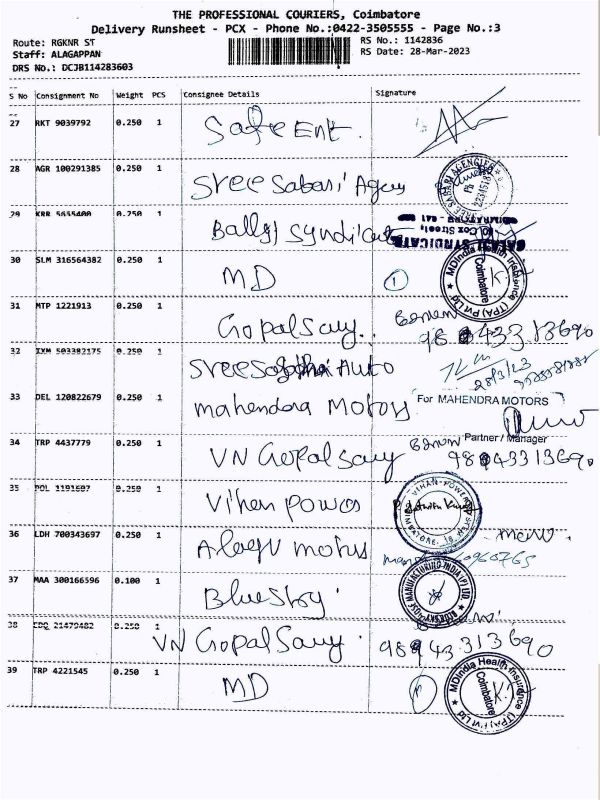 THE PROFESSIONAL COURIERS, Coimbatore
Delivery Runsheet - PCX - Phone No.:0422-3505555 - Page No.:3
Route: RGKNR ST
RS No.: 1142836
Staff: ALAGAPPAN
RS Date: 28-Mar-2023
DRS No.: DCJB114283603
S No Consignment No Weight PCS Consignee Details Signature
27 RKT 9039792 0.250 1 Safe Ent.
28 AGR 100291385 0.250 1 Sree Sabari Agency
29 KRR 5655400 0.250 1 Balaji Syndicate
BALAJI SYNDICATE
Cox Street,
30 SLM 316564382 0.250 1 MD 1
MDIndia Health Insurance (TPA) Pvt Ltd
Coimbatore
31 MTP 1221913 0.250 1 Gopal Samy.. 9843313690
32 IXM 503382175 0.250 1 Sree Auto
28/3/23
33 DEL 120822679 0.250 1 Mahendra Motors
For MAHENDRA MOTORS
Partner / Manager
34 TRP 4437779 0.250 1 VN Gopal Samy 9843313690
35 POL 1191607 0.250 1 Vihan Power
36 LDH 700343697 0.250 1 Alagu Motors
37 MAA 300166596 0.100 1 Bluesky
38 21479482 0.250 1 VN Gopal Samy. 9843313690
39 TRP 4221545 0.250 1 MD
MDIndia Health Insurance (TPA) Pvt Ltd
Coimbatore